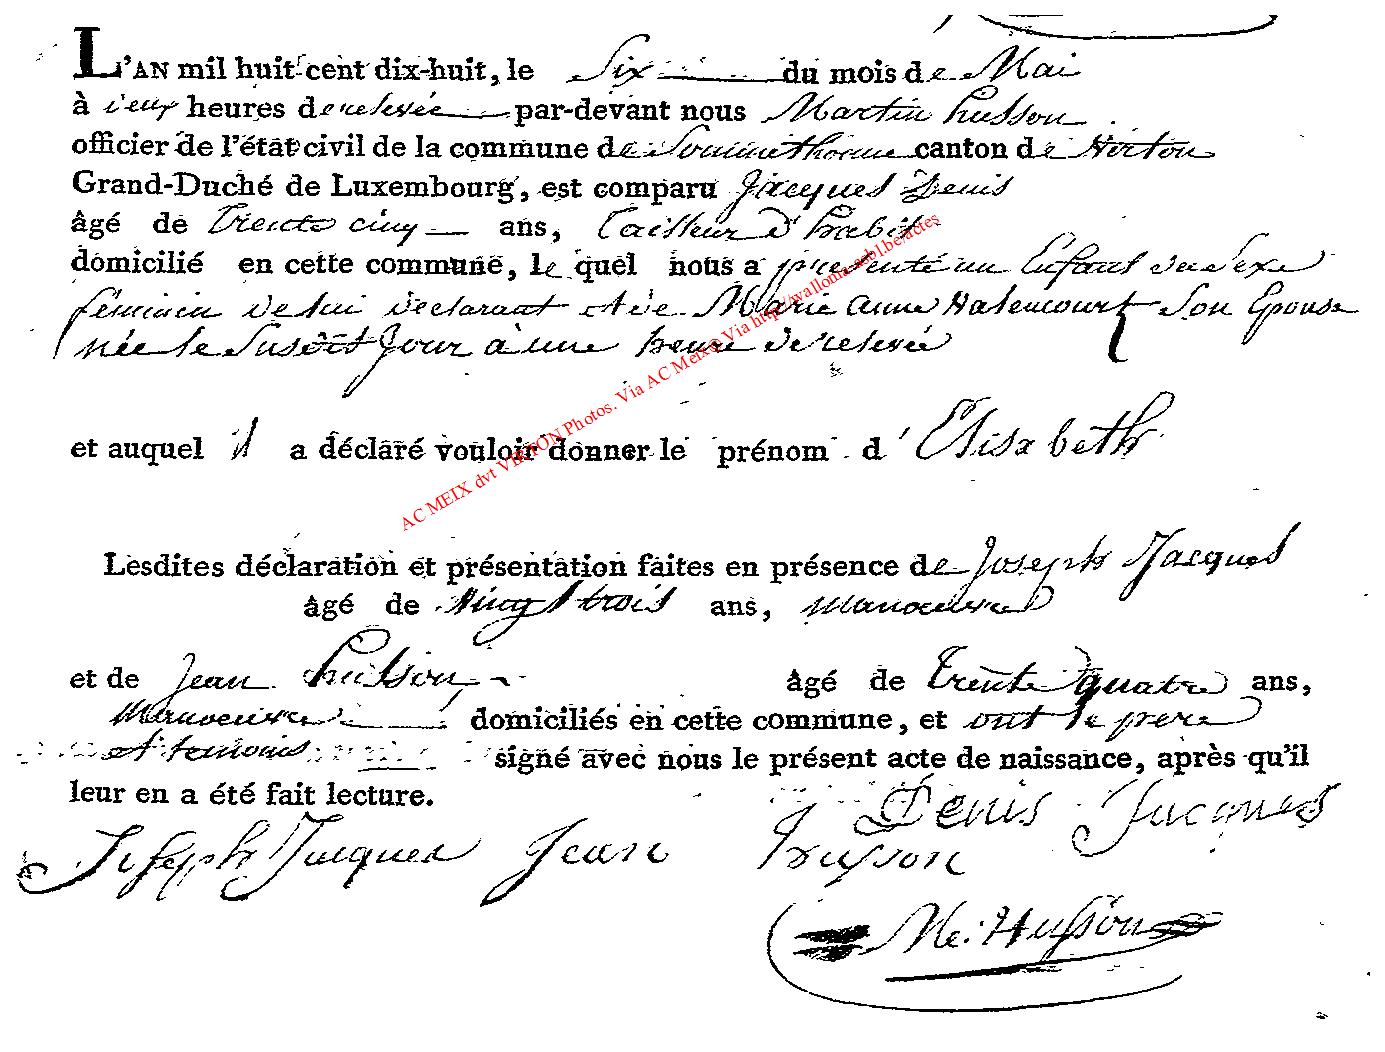 L'AN mil huit cent dix-huit, le Six du mois de Mai
à deux heures de relevée par-devant nous Martin husson
officier de l'état civil de la commune de Sommethonne canton de Virton
Grand-Duché de Luxembourg, est comparu Jacques Denis
âgé de Trente cinq ans, Tailleur d'habit
domicilié en cette commune, le quel nous a présenté un Enfant du Sexe
féminin de lui declarant et de Marie Anne Hatencourt Son Epouse
née le Susdit Jour à une heure de relevée
et auquel il a déclaré vouloir donner le prénom d'Elisabeth
AC MEIX dvt VIRTON Photos. Via AC Meix@ Via
Lesdites déclaration et présentation faites en présence de Joseph Jacques
âgé de Vingt trois ans, manoeuvre
et de Jean husson âgé de trente quatre ans,
manoeuvre domiciliés en cette commune, et ont le pere
et temoins signé avec nous le présent acte de naissance, après qu'il
leur en a été fait lecture.
Denis Jacques
Joseph Jacques Jean husson
Me. Husson